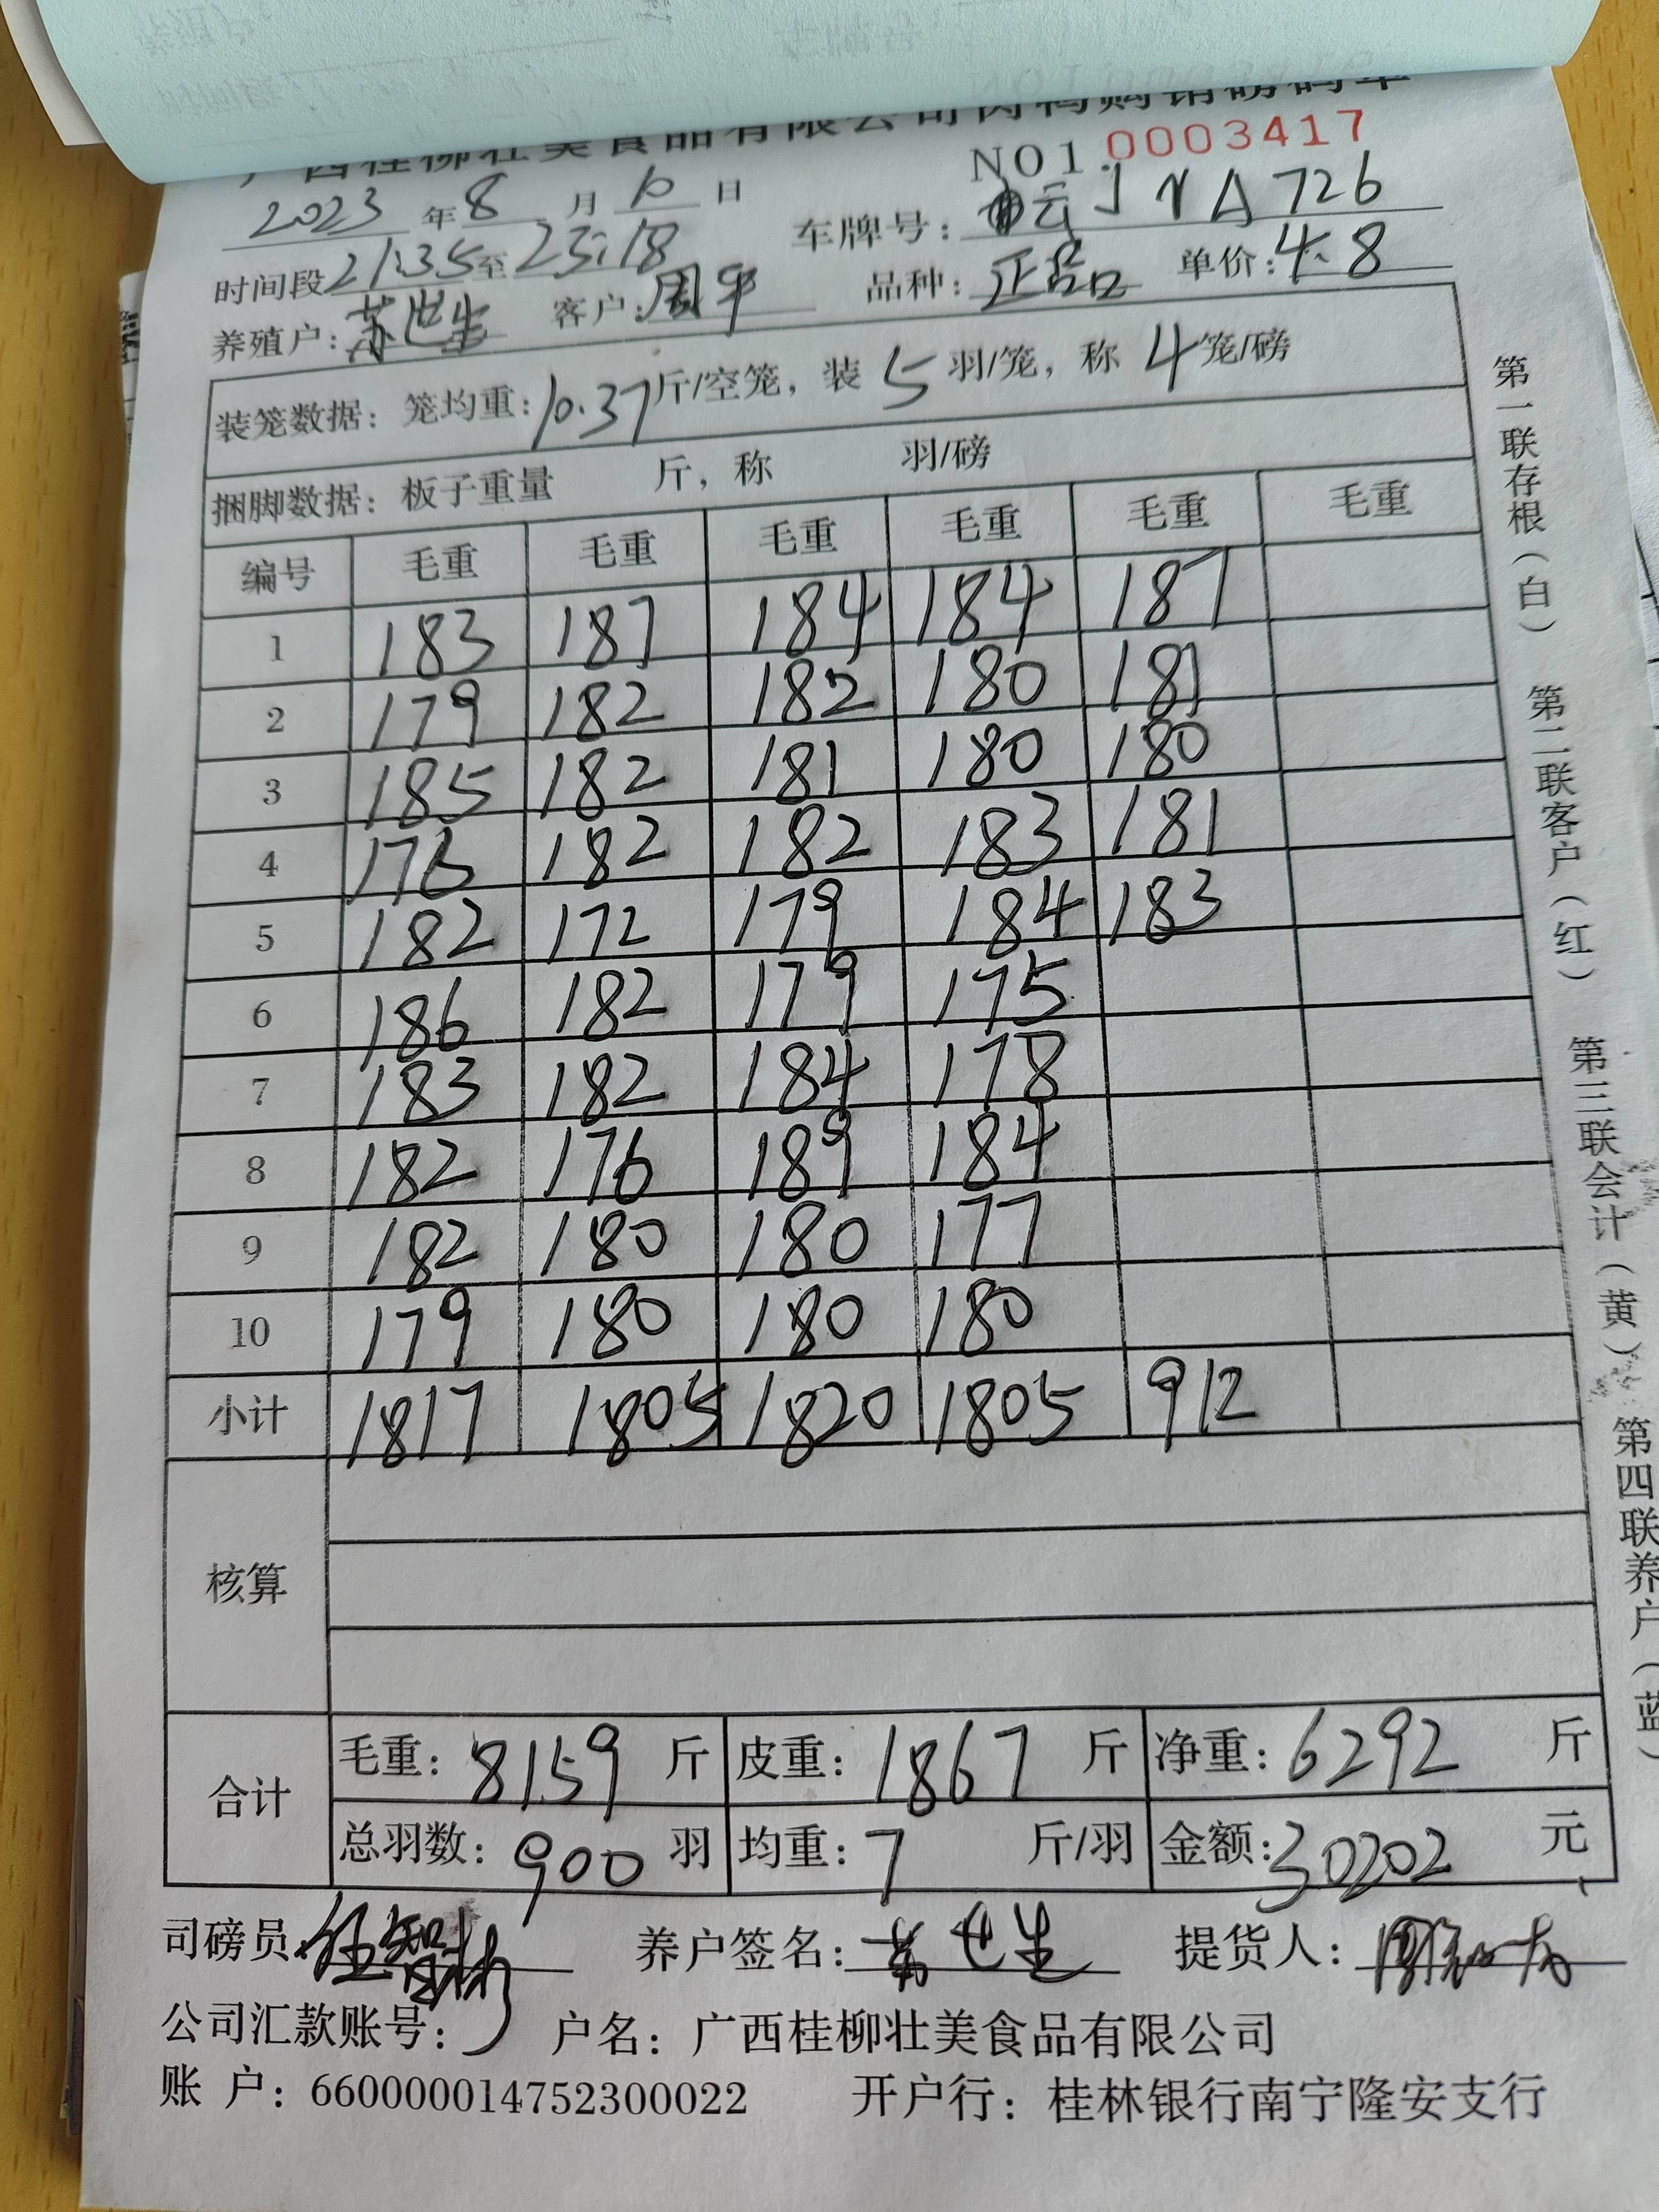 广西桂柳壮美食品有限公司肉鸭购销磅码单
NO1.0003417
2023年8月10日 车牌号: 云J VA726
时间段21:35至23:18 品种: 正品 单价:4.8
养殖户: 苏世生 客户: 周平
装笼数据: 笼均重: 10.37斤/空笼, 装 5 羽/笼, 称 4笼/磅
捆脚数据: 板子重量 斤, 称 羽/磅
编号 毛重 毛重 毛重 毛重 毛重 毛重
1 183 187 184 184 187
2 179 182 182 180 181
3 185 182 181 180 180
4 176 182 182 183 181
5 182 172 179 184 183
6 186 182 179 175
7 183 182 184 178
8 182 176 189 184
9 182 180 180 177
10 179 180 180 180
小计 1817 1805 1820 1805 912
核算
合计 毛重: 8159 斤 皮重: 1867 斤 净重: 6292 斤
总羽数: 900 羽 均重: 7 斤/羽 金额: 30202 元
司磅员: 养户签名: 苏世生 提货人:
公司汇款账号: 户名: 广西桂柳壮美食品有限公司
账 户: 660000014752300022 开户行: 桂林银行南宁隆安支行
第一联存根(白) 第二联客户(红) 第三联会计(黄) 第四联养户(蓝)